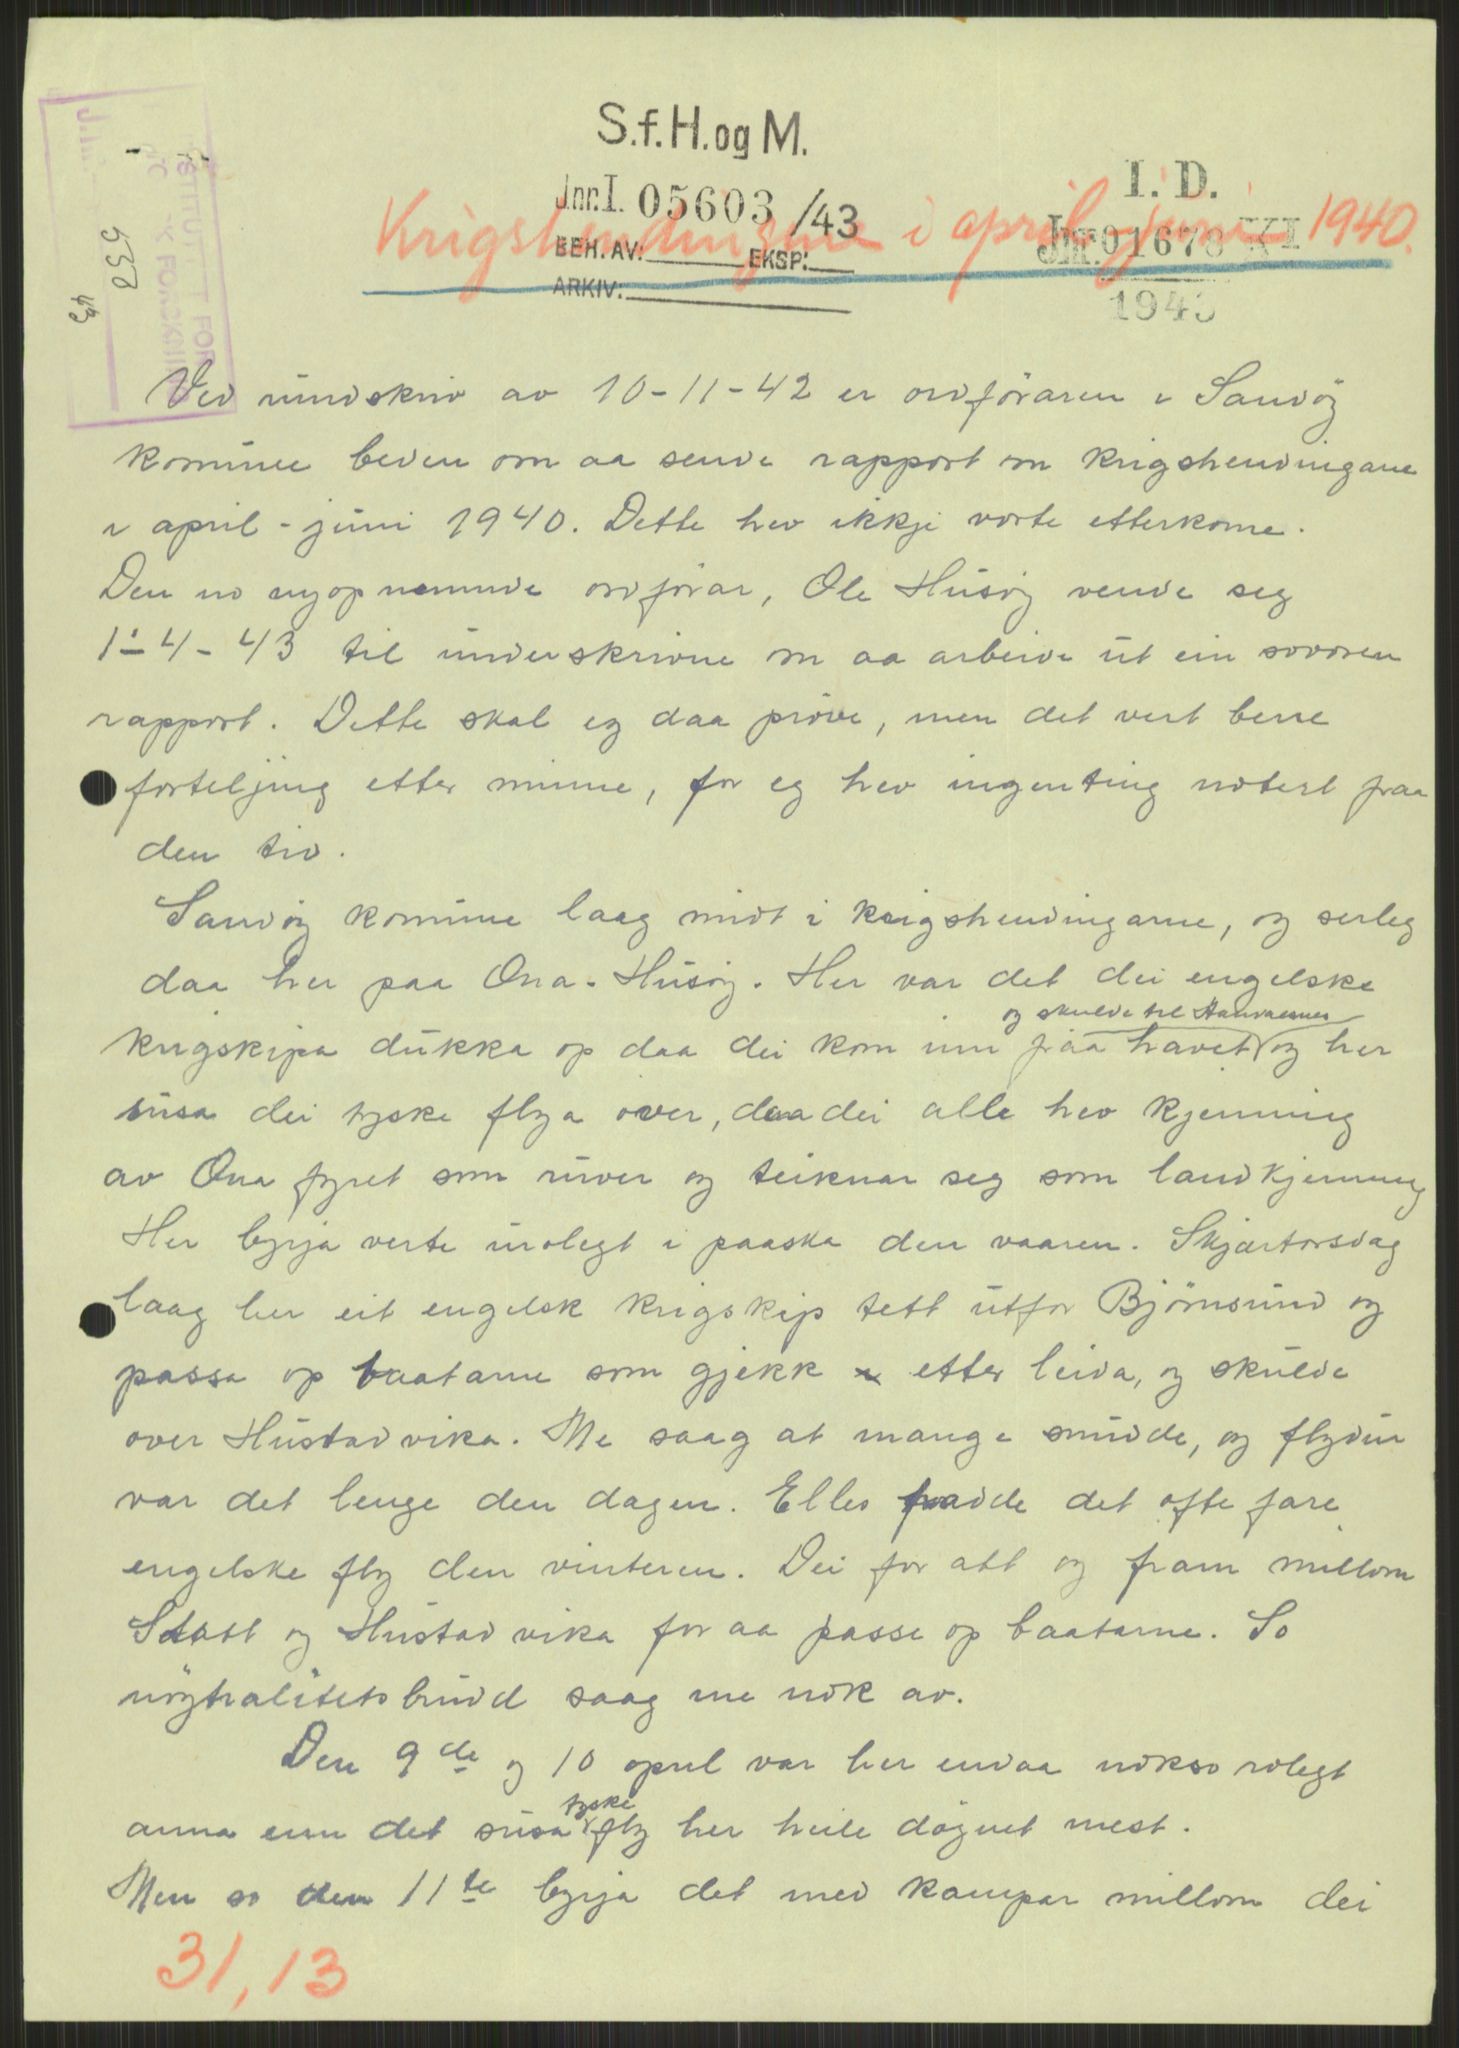 S.f.H.og M.
Jnr.I. 05603 /43
BEH. AV: EKSP:
ARKIV:
I. D.
Jnr. 01678 XI
1943
Krigshendingane i april-juni 1940.
INSTITUTT FOR
558
43
Ved rundskriv av 10-11-42 er ordföraren i Sandöy
kommune beden om aa sende rapport om krigshendingane
i april - juni 1940. Dette hev ikkje vorte etterkome.
Den no nyopnemnde ordförar, Ole Husöy vende seg
1-4-43 til underskrivne om aa arbeide ut ein sovoren
rapport. Dette skal eg daa pröve, men det vert berre
forteljing etter minne, for eg hev ingenting notert fraa
den tid.
Sandöy kommune laag midt i krigshendingarne, og serleg
daa her paa Ona-Husöy. Her var det dei engelske
og skulde til Haudnesnes
krigskipa dukka op daa dei kom inn fraa havet og her
susa dei tyske flya over, daa dei alle hev kjenning
av Ona fyret som ruver og teiknar seg som landkjenning
Her byrja verte urolegt i paaska den vaaren. Skjærtorsdag
laag her eit engelsk krigskip tett utfor Björnsund og
passa op baatarne som gjekk etter leida, og skulde
over Hustadvika. Me saag at mange snudde, og flydur
var det lenge den dagen. Elles hadde det ofte fare
engelske fly den vinteren. Dei for att og fram millom
Statt og Hustadvika for aa passe op baatarne. So
nöytralitetsbrudd saag me nok av.
Den 9de og 10 april var her endaa nokso rolegt
tyske
anna enn det susa fly her heile dögnet mest.
Men so den 11te byrja det med kampar millom dei
31,13